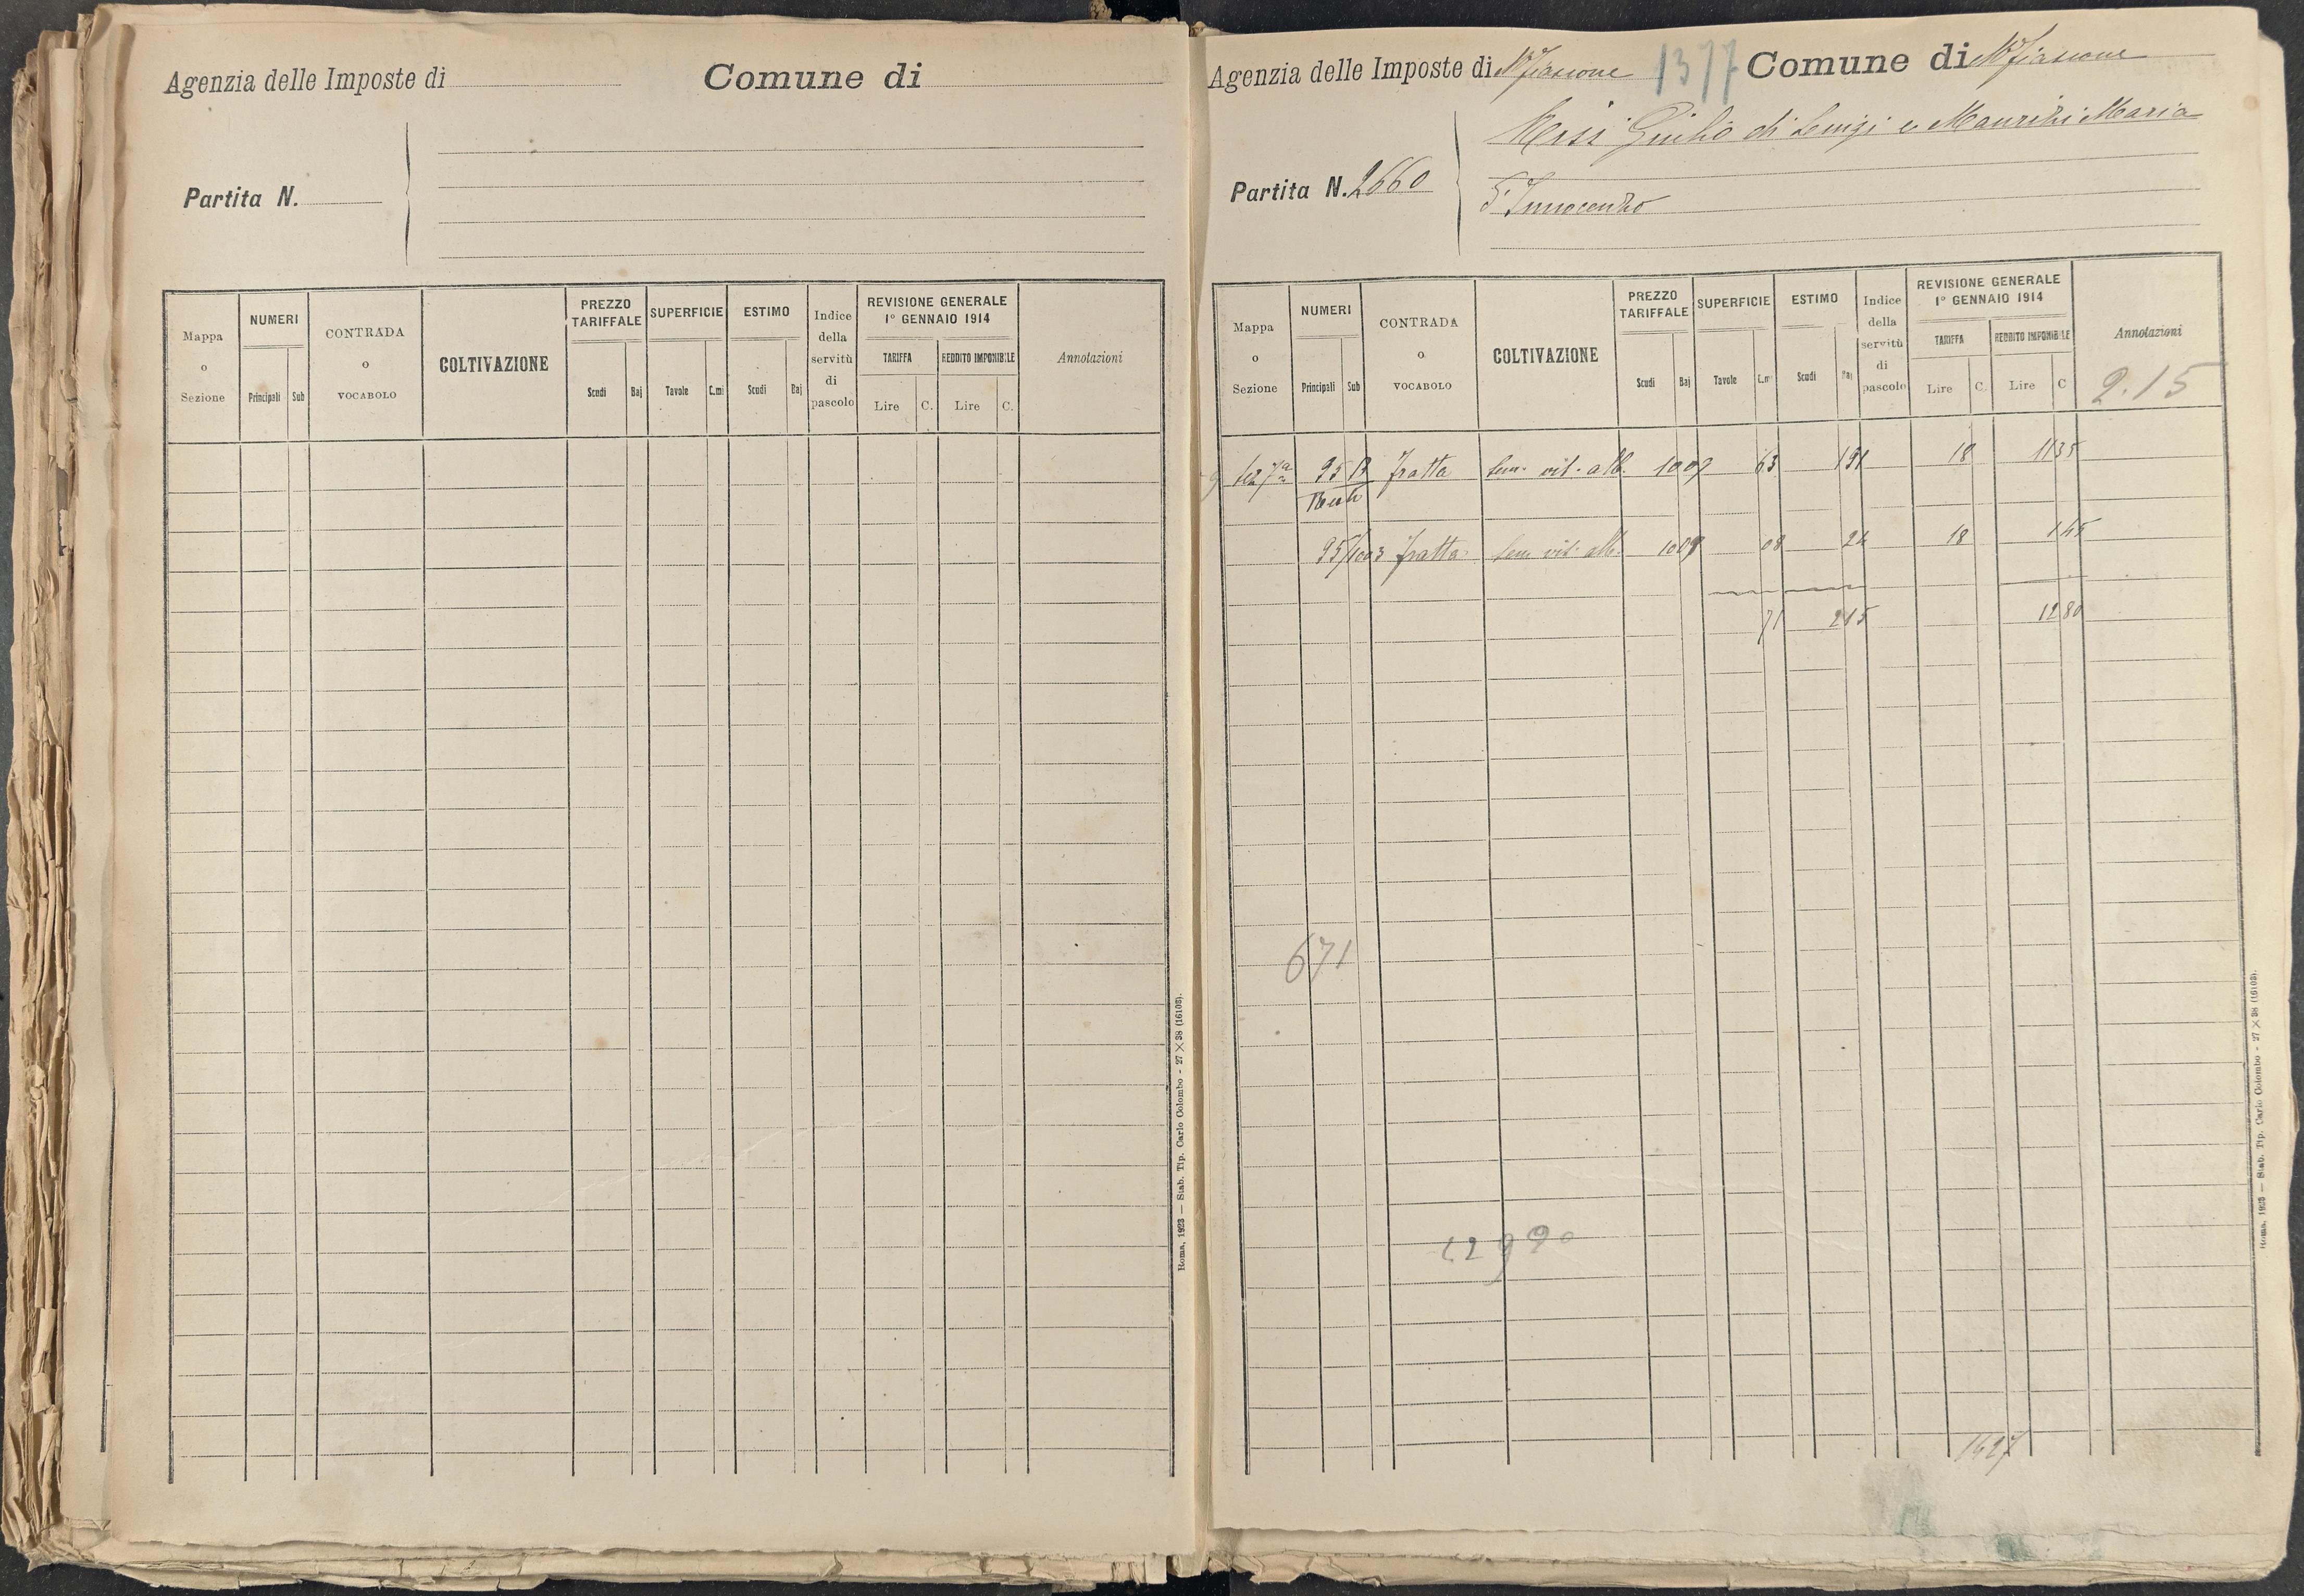 Agenzia delle Imposte di
Comune di
Partita N.
Mappa o Sezione
NUMERI
Principali
Sub
CONTRADA o VOCABOLO
COLTIVAZIONE
PREZZO TARIFFALE
Scudi
Baj
SUPERFICIE
Tavole
C.mi
ESTIMO
Scudi
Baj
Indice della servitù di pascolo
REVISIONE GENERALE
1° GENNAIO 1914
TARIFFA
REDDITO IMPONIBILE
Lire
C.
Lire
C.
Annotazioni
Roma, 1923 — Stab. Tip. Carlo Colombo - 27 × 38 (16103).
Agenzia delle Imposte di Mfiascone
1377
Comune di Mfiascone
Partita N. 2660
Giulio di Luigi e Maurizi Maria
Innocenzo
Mappa o Sezione
NUMERI
Principali
Sub
CONTRADA o VOCABOLO
COLTIVAZIONE
PREZZO TARIFFALE
Scudi
Baj
SUPERFICIE
Tavole
C.mi
ESTIMO
Scudi
Baj
Indice della servitù di pascolo
REVISIONE GENERALE
1° GENNAIO 1914
TARIFFA
REDDITO IMPONIBILE
Lire
C.
Lire
C
Annotazioni
2.15
7a 95 B Fratta Sem. vit. alb. 10 09 63 191 18 11 35
95/1003 Fratta Sem. vit. alb. 10 09 08 24 18 1 45
71 215 12 80
671
12990
1427
Roma, 1923 — Stab. Tip. Carlo Colombo - 27 × 38 (16103).